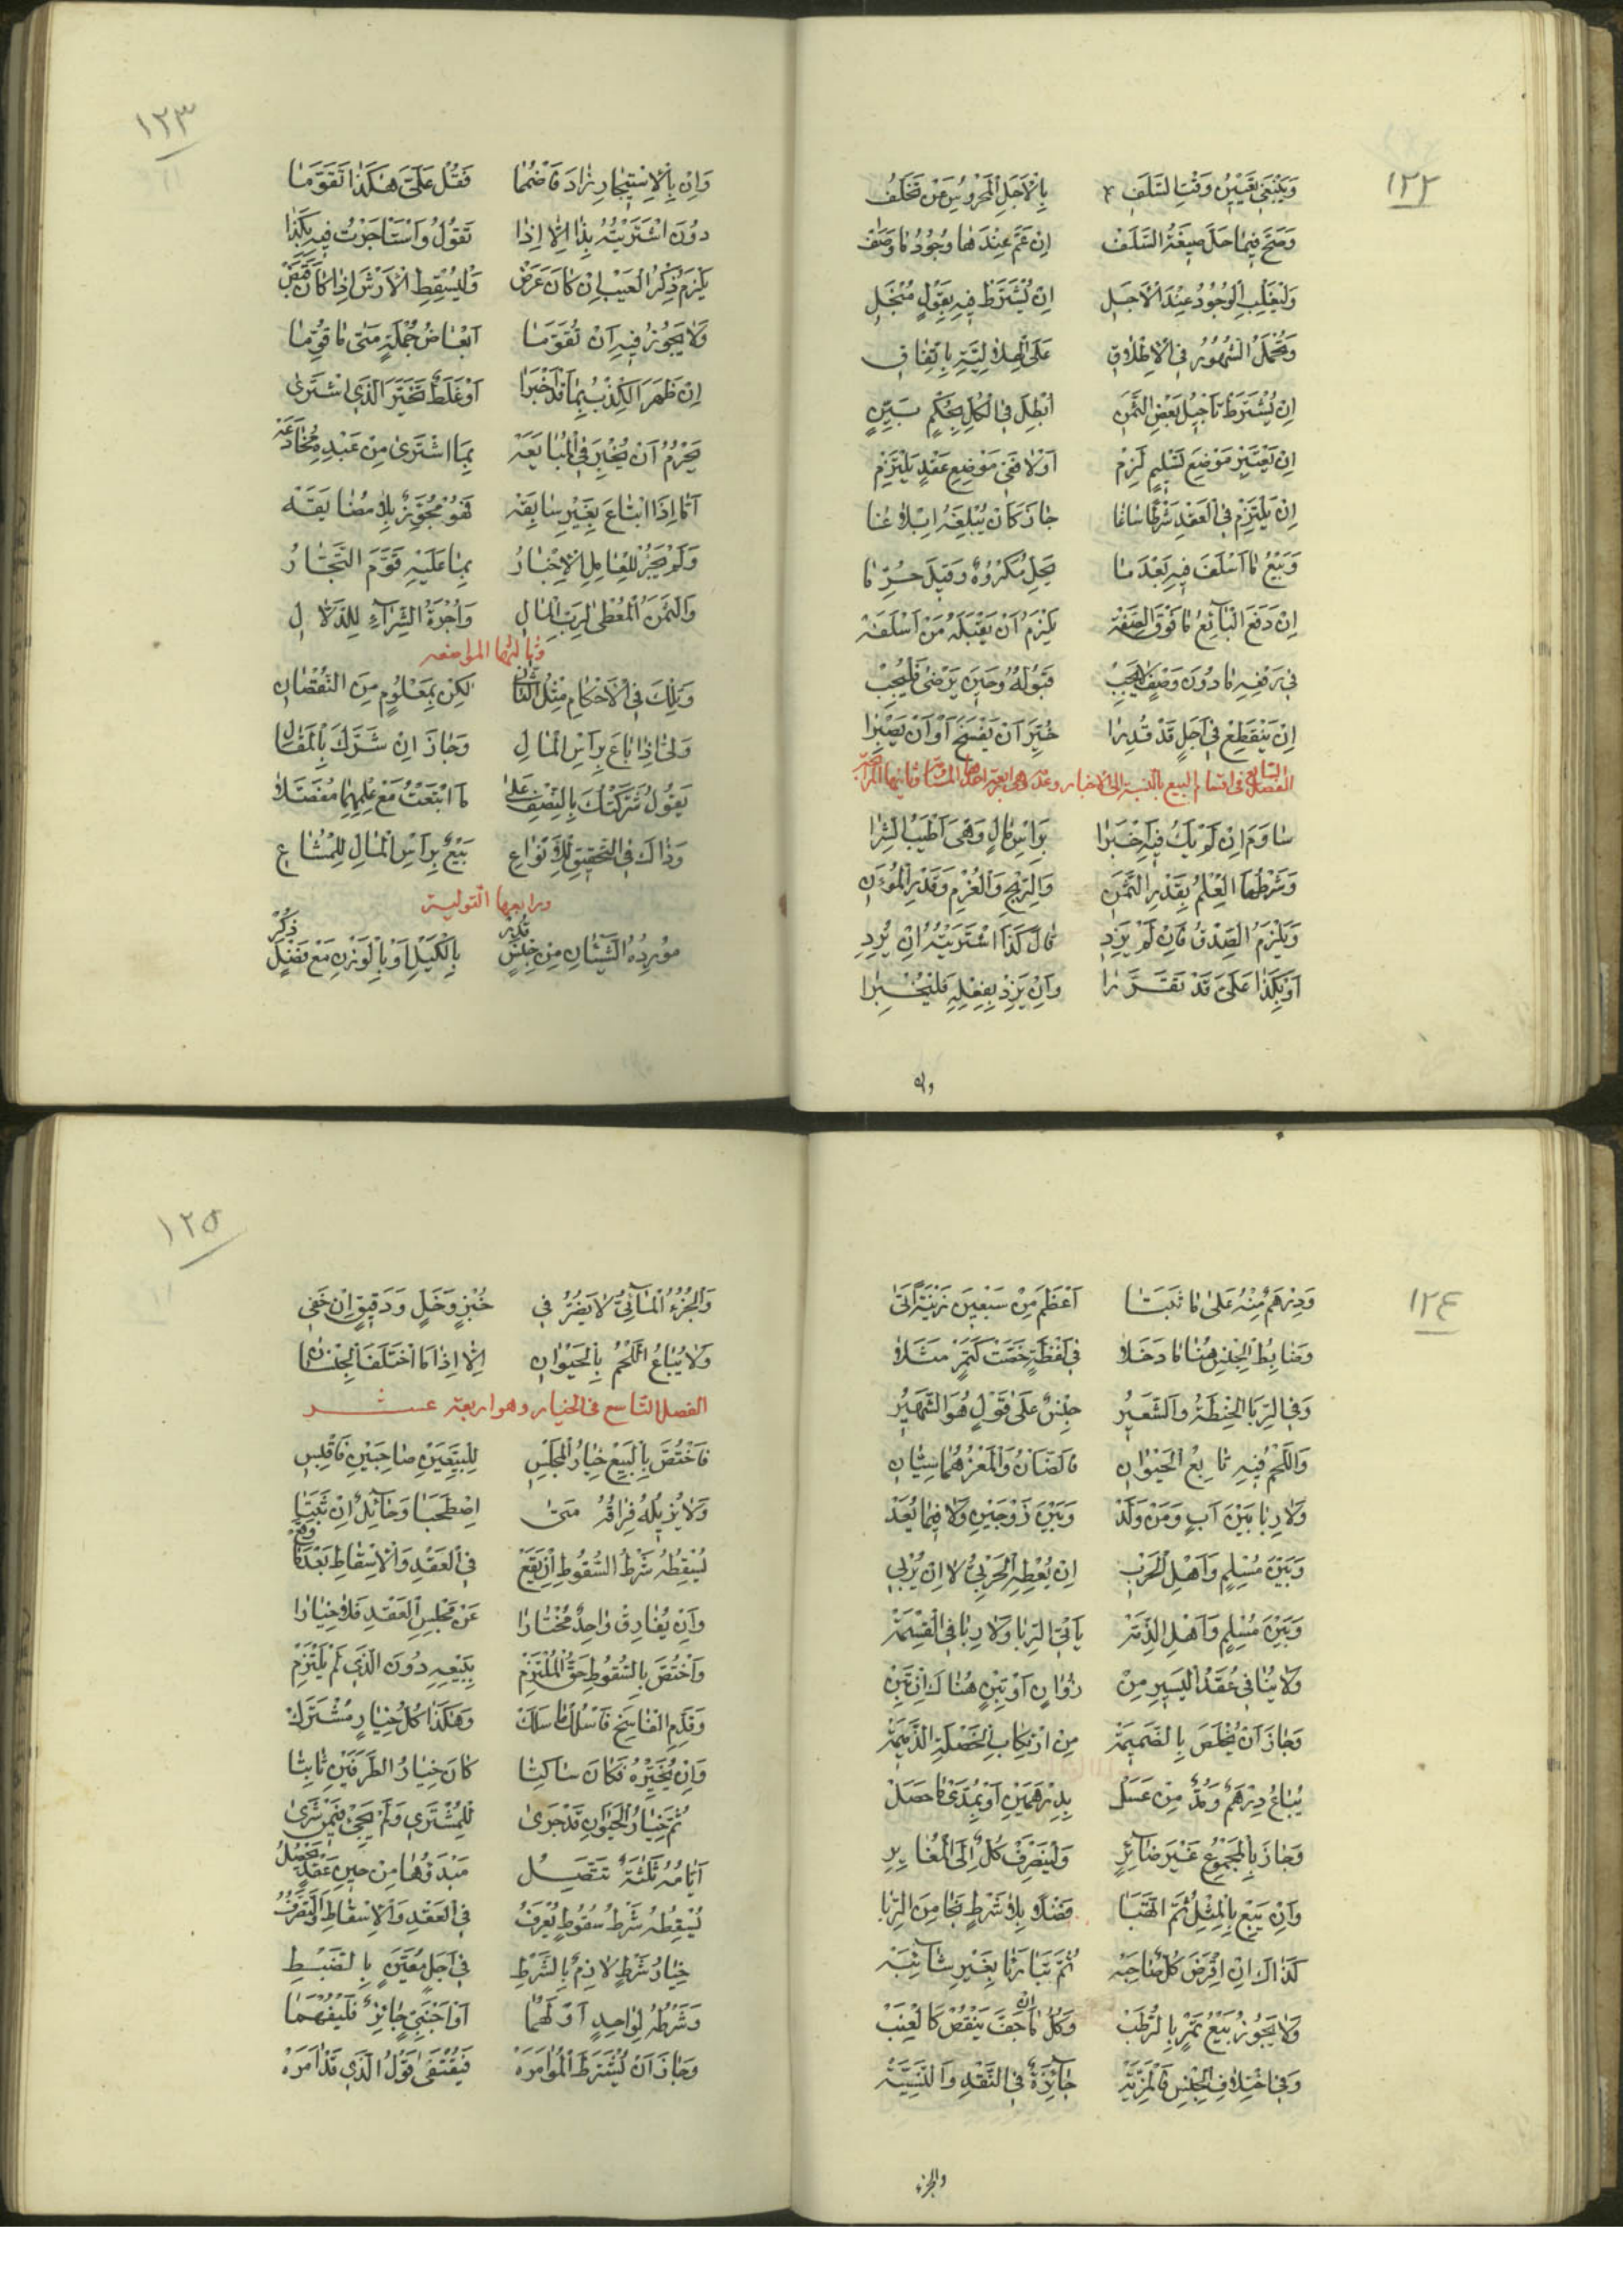 ١٢٢
وَيَنْبَغِي تَعْيِينُ وَقْتِ السَّلَفِ بِالْأَجَلِ الْمَحْرُوسِ عَنْ تَخَلُّفِ
وَصَحَّ فِيمَا حَلَّ صِيغَةُ السَّلَفْ إِنْ عَمَّ عِنْدَهَا وُجُودُ مَا وَصَفْ
وَلْيَغْلِبِ الْوُجُودُ عِنْدَ الْأَجَلِ إِنْ يُشْتَرَطْ فِيهِ بِقَوْلٍ مُنْجَلِ
وَتُحْمَلُ الشُّهُورُ فِي الْإِطْلَاقِ عَلَى الْهِلَالِيَّةِ بِاتِّفَاقِ
إِنْ يُشْتَرَطْ تَأْجِيلُ بَعْضِ الثَّمَنِ أُبْطِلَ فِي الْكُلِّ بِحُكْمٍ بَيِّنِ
إِنْ يُعْتَبَرْ مَوْضِعُ تَسْلِيمٍ لَزِمْ أَوْ لَا فَفِي مَوْضِعِ عَقْدٍ يَلْتَزِمْ
إِنْ يَلْتَزِمْ فِي الْعَقْدِ شَرْطًا سَائِغًا جَازَ كَانَ يُبْلِغَهُ إِبْلَاغًا
وَبَيْعُ مَا أَسْلَفَ فِيهِ بَعْدَ مَا يَحِلُّ مَكْرُوهٌ وَقِيلَ حُرِّمَا
إِنْ دَفَعَ الْبَائِعُ مَا فَوْقَ الصِّفَهْ يَلْزَمُ أَنْ يَقْبَلَهُ مَنْ أَسْلَفَهْ
فِي دَفْعِهِ مَا دُونَ وَصْفٍ لَا يَجِبْ قَبُولُهُ وَحِينَ يَرْضَى فَلْيُجِبْ
إِنْ يَنْقَطِعْ فِي أَجَلٍ قَدْ قُدِّرَا خُيِّرَ أَنْ يَفْسَخَ أَوْ أَنْ يَصْبِرَا
الفصل الثامن في اقسام البيع بالنسبة الى الاخبار وعدمه وهي اربعة احدها المساومة وثانيها المرابحة
سَاوَمَ إِنْ لَمْ يَكُ فِيهِ أَخْبَرَا بِرَأْسِ مَالٍ وَهْيَ أَطْيَبُ الشِّرَا
وَشَرْطُهَا الْعِلْمُ بِقَدْرِ الثَّمَنِ وَالرِّبْحِ وَالْغُرْمِ وَقَدْرِ الْمُؤَنِ
وَيَلْزَمُ الصِّدْقُ فَإِنْ لَمْ يَزِدِ قَالَ كَذَا اشْتَرَيْتُهُ إِنْ يُرِدِ
أَوْ بِكَذَا عَلَيَّ قَدْ تَقَرَّرَا وَإِنْ يَزِدْ بِفِعْلِهِ فَلْيُخْبِرَا
وان
١٢٣
وَإِنْ بِالِاسْتِيجَارِ زَادَ فَاضْمُمَا فَقُلْ عَلَيَّ هَكَذَا تَقَوَّمَا
دُونَ اشْتَرَيْتُهُ بِذَا إِلَّا إِذَا تَقُولُ وَاسْتَأْجَرْتُ فِيهِ بِكَذَا
يَلْزَمُ ذِكْرُ الْعَيْبِ إِنْ كَانَ عَرَضْ وَلْيُسْقِطِ الْأَرْشَ إِذَا كَانَ قَبَضْ
وَلَا يَجُوزُ فِيهِ أَنْ تُقَوِّمَا أَبْعَاضُ جُمْلَةٍ مَتَى مَا قُوِّمَا
إِنْ ظَهَرَ الْكِذْبُ بِمَا قَدْ أَخْبَرَا أَوْ غَلَطٌ تَخَيَّرَ الَّذِي اشْتَرَى
يَحْرُمُ أَنْ يُخْبِرَ فِي الْمُبَايَعَهْ بِمَا اشْتَرَى مِنْ عَبْدِهِ مُخَادَعَهْ
أَمَّا إِذَا ابْتَاعَ بِغَيْرِ سَابِقَهْ فَهُوَ مُجَوَّزٌ بِلَا مُضَايَقَهْ
وَلَمْ يَجُزْ لِلْعَامِلِ الْإِخْبَارُ بِمَا عَلَيْهِ قَوَّمَ التُّجَّارُ
وَالثَّمَنُ الْمُعْطَى لِرَبِّ الْمَالِ وَأُجْرَةُ الشِّرَاءِ لِلدَّلَّالِ
وثالثها المواضعة
وَتِلْكَ فِي الْأَحْكَامِ مِثْلُ الثَّانِي لَكِنْ بِمَعْلُومٍ مِنَ النُّقْصَانِ
وَلَّى إِذَا بَاعَ بِرَأْسِ الْمَالِ وَجَازَ إِنْ شَرَّكَ بِالْمَقَالِ
يَقُولُ شَرَّكْتُكَ بِالنِّصْفِ عَلَى مَا ابْتَعْتُ مَعْ عِلْمِهِمَا مُفَصَّلَا
وَذَاكَ فِي التَّحْقِيقِ لِلْأَنْوَاعِ بَيْعٌ بِرَأْسِ الْمَالِ لِلْمُشَاعِ
ورابعها التولية
مَوْرِدُهُ الشَّيْئَانِ مِنْ جِنْسٍ قُدِّرْ بِالْكَيْلِ أَوْ بِالْوَزْنِ مَعْ فَضْلٍ ذُكِرْ
١٢٤
وَدِرْهَمٌ مِنْهُ عَلَى مَا ثَبَتَا أَعْظَمُ مِنْ سَبْعِينَ زَنْيَةً أَتَى
وَضَابِطُ الْجِنْسِ هُنَا مَا دَخَلَا فِي لَفْظَةٍ خَصَّتْ كَتَمْرٍ مَثَلَا
وَفِي الرِّبَا الْحِنْطَةُ وَالشَّعِيرُ جِنْسٌ عَلَى قَوْلٍ هُوَ الشَّهِيرُ
وَاللَّحْمُ فِيهِ تَابِعُ الْحَيَوَانِ فَالضَّانُ وَالْمَعْزُ هُمَا سِيَّانِ
وَلَا رِبَا بَيْنَ أَبٍ وَمَنْ وَلَدْ وَبَيْنَ زَوْجَيْنِ وَلَا فِيمَا يُعَدْ
وَبَيْنَ مُسْلِمٍ وَأَهْلِ الْحَرْبِ إِنْ يُعْطِهِ الْحَرْبِيُّ لَا إِنْ يُرْبِي
وَبَيْنَ مُسْلِمٍ وَأَهْلِ الذِّمَّهْ يَأْتِي الرِّبَا وَلَا رِبَا فِي الْقِسْمَهْ
وَلَا يُنَافِي عُقَدُ الْيَسِيرِ مِنْ زُؤَانٍ أَوْ تِبْنٍ هُنَالَكَ إِنْ تَبِنْ
وَجَازَ أَنْ يُخْلَصَ بِالضَّمِيمَهْ مِنِ ارْتِكَابِ الْخَصْلَةِ الذَّمِيمَهْ
يُبَاعُ دِرْهَمٌ وَمُدٌّ مِنْ عَسَلْ بِدِرْهَمَيْنِ أَوْ بِمُدَّيْ مَا حَصَلْ
وَجَازَ بِالْمَجْمُوعِ غَيْرَ ضَائِرِ وَلْيَنْصَرِفْ كُلٌّ إِلَى الْمُغَايِرِ
وَإِنْ يَبِعْ بِالْمِثْلِ ثُمَّ اتَّهَبَا فَضْلًا بِلَا شَرْطٍ نَجَا مِنَ الرِّبَا
كَذَاكَ إِنْ اقْرَضَ كُلٌّ صَاحِبَهْ ثُمَّ تَبَارَيَا بِغَيْرِ شَائِبَهْ
وَلَا يَجُوزُ بَيْعُ تَمْرٍ بِالرُّطَبْ وَكُلُّ مَا إِنْ جَفَّ يَنْقُصْ كَالْعِنَبْ
وَفِي اخْتِلَافِ الْجِنْسِ فَالْمَزِيَّهْ جَائِزَةٌ فِي النَّقْدِ وَالنَّسِيَّهْ
والجزء
١٢٥
وَالْجُزْءُ الْمَائِيُّ لَا يَضُرُّ فِي خُبْزٍ وَخَلٍّ وَدَقِيقٍ إِنْ خَفِي
وَلَا يُبَاعُ اللَّحْمُ بِالْحَيَوَانِ إِلَّا إِذَا مَا اخْتَلَفَ الْجِنْسَانِ
الفصل التاسع في الخيار وهو اربعة عشر
فَاخْتُصَّ بِالْبَيْعِ خِيَارُ الْمَجْلِسِ لِلْبَيِّعَيْنِ صَاحِبَيْنِ فَاقْبِسِ
وَلَا يُزِيلُهُ فِرَاقُهُ مَتَى اصْطَحَبَا وَحَائِلٌ إِنْ ثَبَتَا
يُسْقِطُهُ شَرْطُ السُّقُوطِ إِنْ يَقَعْ فِي الْعَقْدِ وَالْإِسْقَاطِ بَعْدَمَا وَقَعْ
وَإِنْ يُفَارِقْ وَاحِدٌ مُخْتَارَا عَنْ مَجْلِسِ الْعَقْدِ فَلَا خِيَارَا
وَاخْتُصَّ بِالسُّقُوطِ حَقُّ الْمُلْتَزِمْ بِبَيْعِهِ دُونَ الَّذِي لَمْ يَلْتَزِمْ
وَقَدِّمِ الْفَاسِخَ فَاسْلُكْ مَا سَلَكْ وَهَكَذَا كُلُّ خِيَارٍ مُشْتَرَكْ
وَإِنْ يُخَيِّرْهُ فَكَانَ سَاكِتَا كَانَ خِيَارُ الطَّرَفَيْنِ ثَابِتَا
ثُمَّ خِيَارُ الْحَيَوَانِ قَدْ جَرَى لِلْمُشْتَرِي وَلَمْ يَجِئْ فِيمَنْ شَرَى
أَيَّامُهُ ثَلَثَةٌ تَتَّصِلُ مَبْدَؤُهَا مِنْ حِينِ عَقْدٍ يَحْصُلُ
يُسْقِطُهُ شَرْطُ سُقُوطٍ يُعْرَفُ فِي الْعَقْدِ وَالْإِسْقَاطِ وَالتَّصَرُّفُ
خِيَارُ شَرْطٍ لَازِمٌ بِالشَّرْطِ فِي أَجَلٍ مُعَيَّنٍ بِالضَّبْطِ
وَشَرْطُهُ لِوَاحِدٍ أَوْ لَهُمَا أَوْ أَجْنَبِيٍّ جَائِزٌ فَلْيُفْهَمَا
وَجَازَ أَنْ يُشْتَرَطَ الْمُؤَامَرَهْ فَيُقْتَفَى قَوْلُ الَّذِي قَدْ أَمَرَهْ